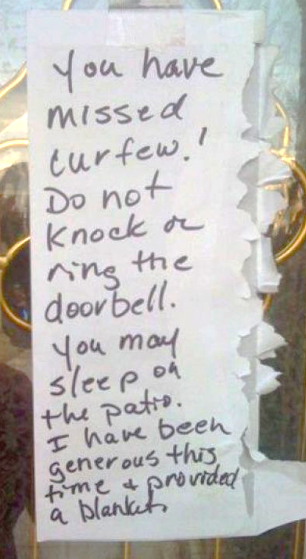 You have
missed
curfew.!
Do not
knock or
ring the
doorbell.
You may
sleep on
the patio.
I have been
generous this
time & provided
a blanket.